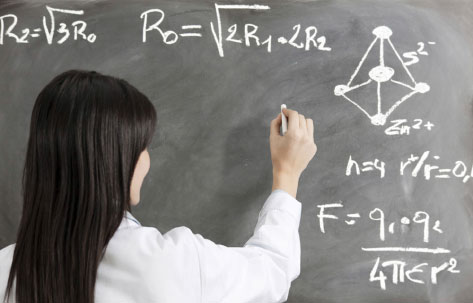 R₂=√3R₀
R₀=√2R₁·2R₂
S²⁻
Zn²⁺
n=4 r⁺/r⁻=0,
F= q₁·q₂
4πϵr²